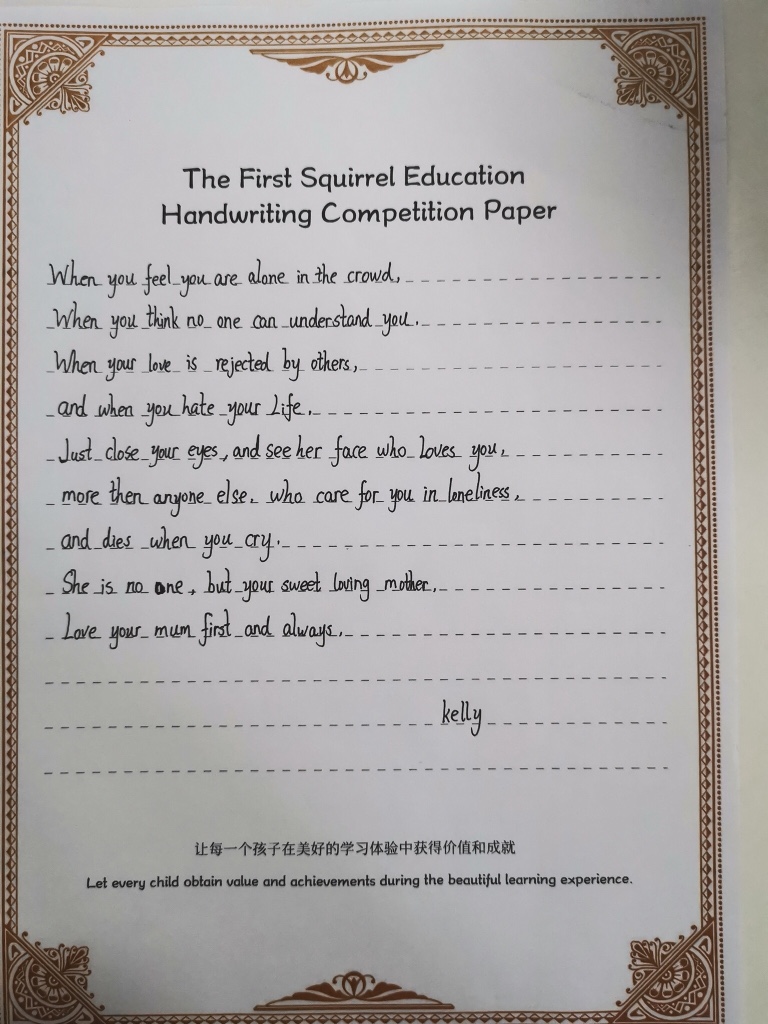 The First Squirrel Education
Handwriting Competition Paper
When you feel you are alone in the crowd,
When you think no one can understand you.
When your love is rejected by others,
and when you hate your Life.
Just close your eyes, and see her face who loves you,
more then anyone else. who care for you in loneliness,
and dies when you cry.
She is no one, but your sweet loving mother.
Love your mum first and always.
kelly
让每一个孩子在美好的学习体验中获得价值和成就
Let every child obtain value and achievements during the beautiful learning experience.